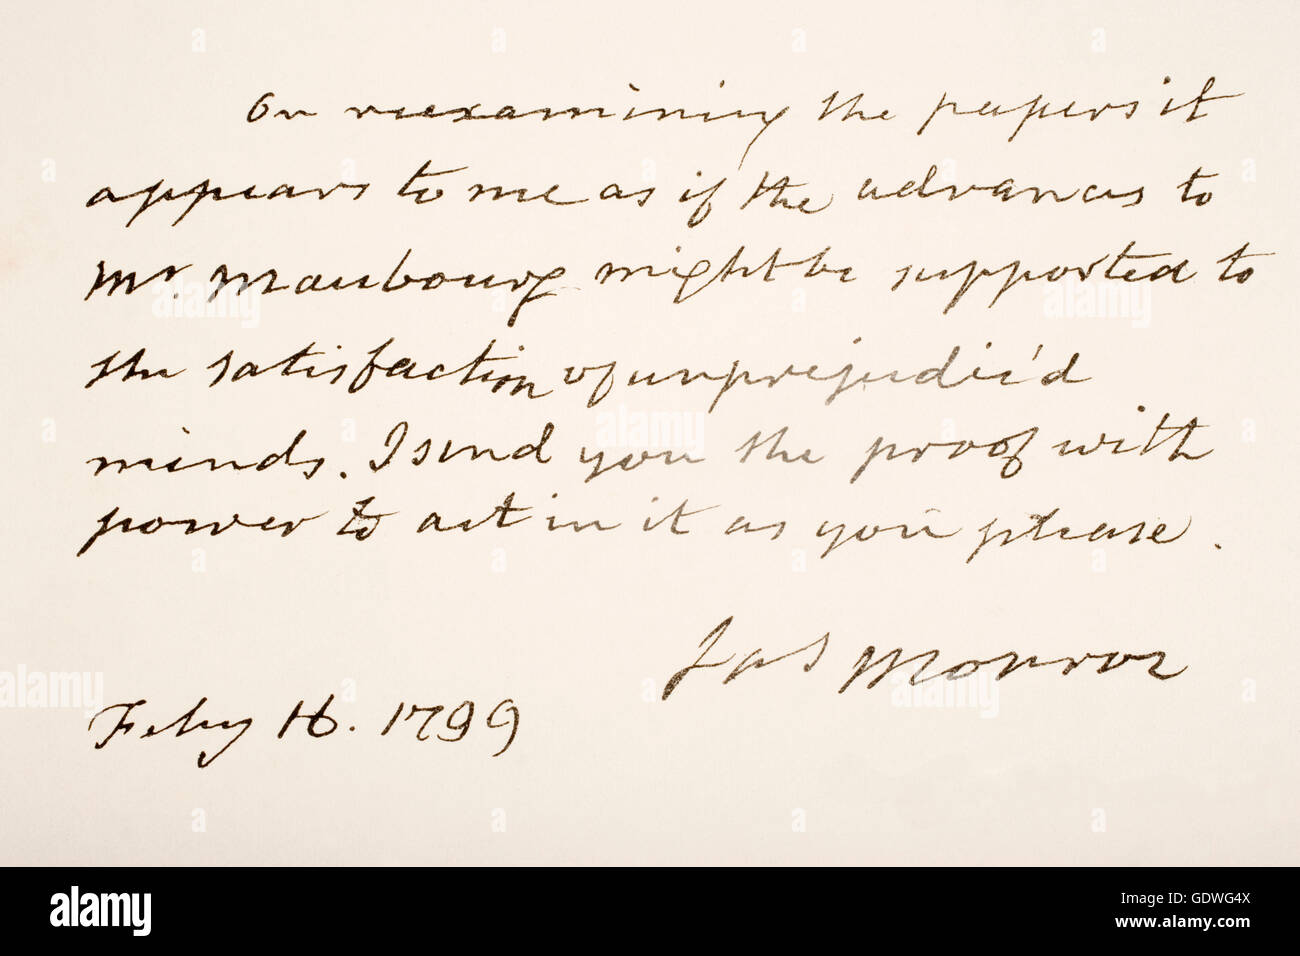 On reexamining the papers it
appears to me as if the advances to
Mr. Maubourg might be supported to
the satisfaction of unprejudic'd
minds. I send you the proof with
power to act in it as you please.
Jas Monroe
Feby 16. 1799
alamy
Image ID: GDWG4X
www.alamy.com